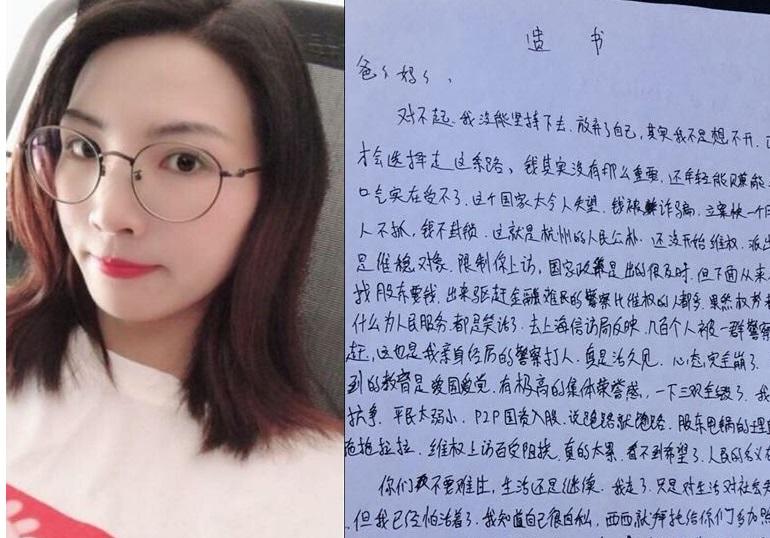 遗 书
爸々妈々、
对不起、我没能坚持下去、放弃了自己,其实我不是想不开、
才会选择走这条路、钱其实没有那么重要、还年轻能
口气实在受不了、这个国家太令人失望、钱被诈骗、立案快一个
人不抓,钱不封锁、这就是杭州的人民公仆、还没开始维权、派出
是维稳对像、限制你上访、国家政策是出的很及时、但下面从来
找股东要钱,出来驱赶金融难民的警察比维权的人都多、果然权
什么为人民服务都是笑话了、去上海信访局反映、几百个人被一群警察
赶、这也是我亲身经历的警察打人、真是活久见、心态完全崩了、
到的教育是爱国爱党、有极高的集体荣誉感、一下三观全毁了、我
抗争、平民太弱小、P2P国资入股、说跑路就跑路、股东甩锅的理
拖拖拉拉、维权上访百受阻挠、真的太累、看不到希望了、人民的名义
你们不要难过、生活还是继续、我走了、只是对生活对社会
但我已经怕活着了、我知道自己很自私、西西就拜托给你们